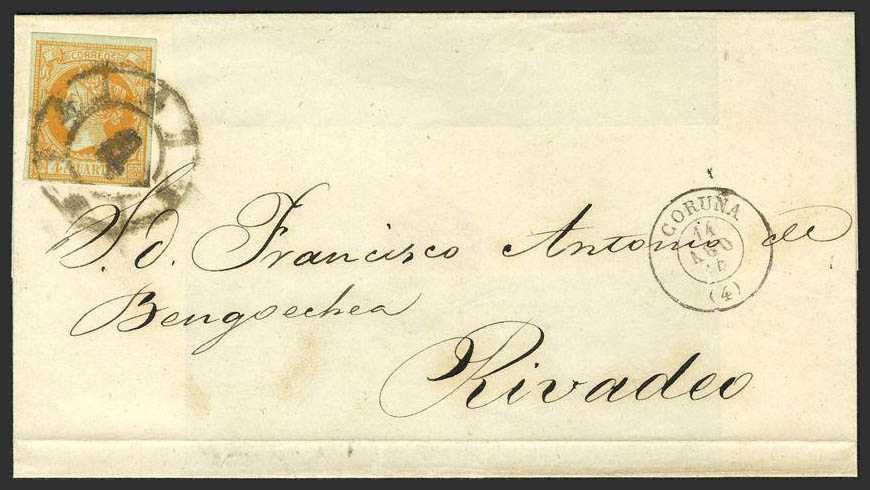 CORREOS
4 CUARTOS
S. D. Francisco Antonio de
Bengoechea
Rivadeo
CORUÑA
14
AGO
(4)